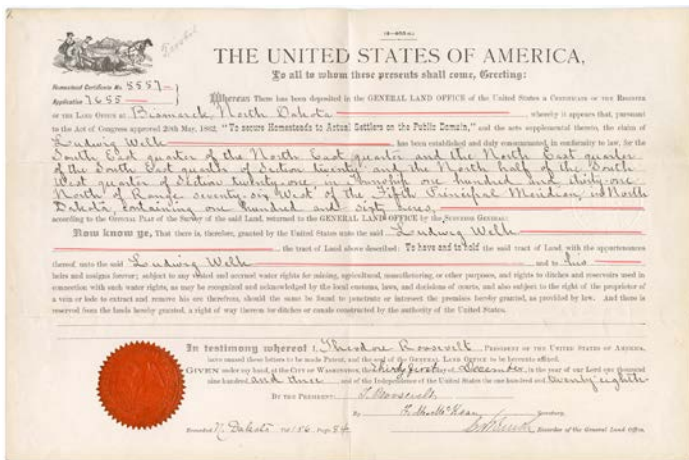 (4-405.a.)
THE UNITED STATES OF AMERICA,
To all to whom these presents shall come, Greeting:
Homestead Certificate No. 5557
Application 7655
Whereas There has been deposited in the GENERAL LAND OFFICE of the United States a Certificate of the Register
of the Land Office at Bismarck, North Dakota, whereby it appears that, pursuant
to the Act of Congress approved 20th May, 1862, "To secure Homesteads to Actual Settlers on the Public Domain," and the acts supplemental thereto, the claim of
Ludwig Welk has been established and duly consummated, in conformity to law, for the
South East quarter of the North East quarter and the North East quarter
of the South East quarter of Section twenty and the North half of the South
West quarter of Section twenty-one in Township one hundred and thirty-one
North of Range seventy-six West of the Fifth Principal Meridian, in North
Dakota, containing one hundred and sixty acres,
according to the Official Plat of the Survey of the said Land, returned to the GENERAL LAND OFFICE by the Surveyor General:
Now know ye, That there is, therefore, granted by the United States unto the said Ludwig Welk
the tract of Land above described: To have and to hold the said tract of Land, with the appurtenances
thereof, unto the said Ludwig Welk and to his
heirs and assigns forever; subject to any vested and accrued water rights for mining, agricultural, manufacturing, or other purposes, and rights to ditches and reservoirs used in
connection with such water rights, as may be recognized and acknowledged by the local customs, laws, and decisions of courts, and also subject to the right of the proprietor of
a vein or lode to extract and remove his ore therefrom, should the same be found to penetrate or intersect the premises hereby granted, as provided by law. And there is
reserved from the lands hereby granted, a right of way thereon for ditches or canals constructed by the authority of the United States.
In testimony whereof I, Theodore Roosevelt, President of the United States of America,
have caused these letters to be made Patent, and the seal of the General Land Office to be hereunto affixed.
Given under my hand, at the City of Washington, the thirty first day of December, in the year of our Lord one thousand
nine hundred and three, and of the Independence of the United States the one hundred and twenty-eighth
By the President: T. Roosevelt
By F. M. McKean, Secretary.
Recorded N. Dakota Vol. 156 Page 84 Recorder of the General Land Office.